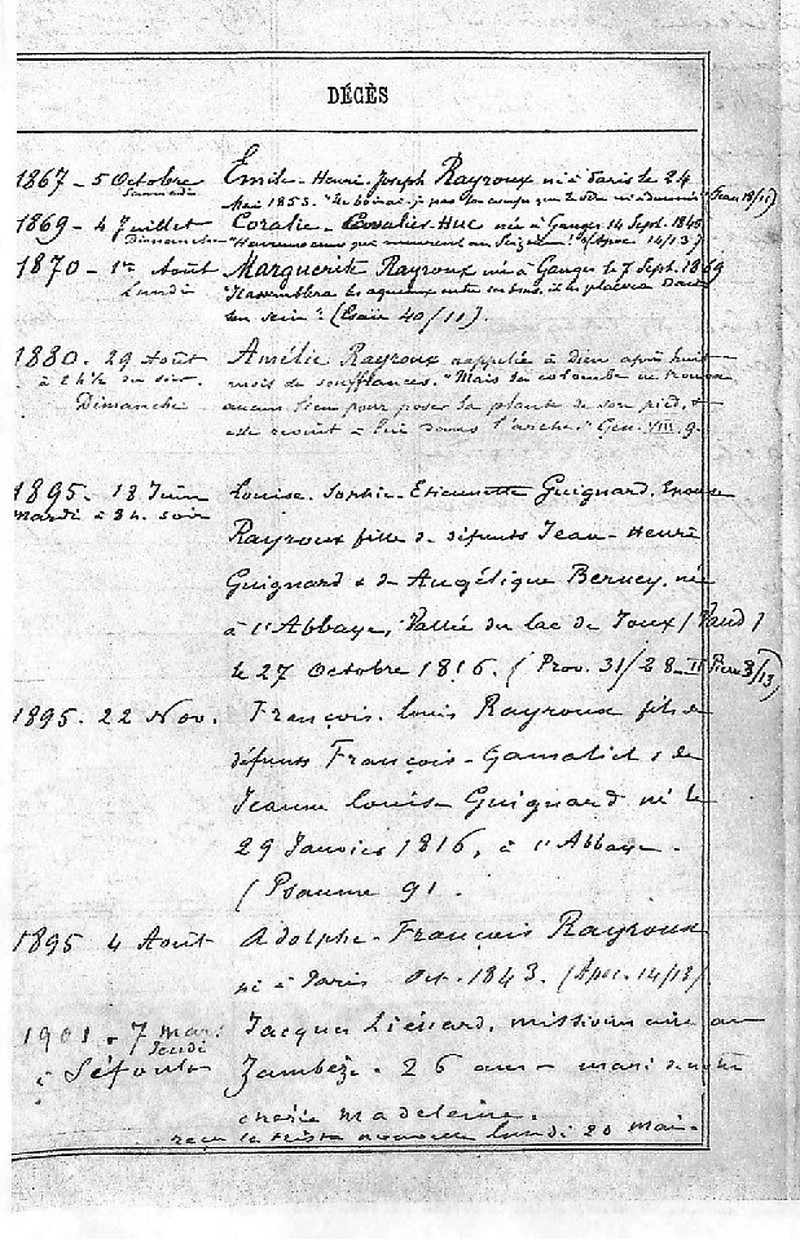 DÉCÈS
1867 - 5 Octobre Émile-Henri-Joseph Rayroux né à Paris le 24
Samedi Mai 1853. "Ne boirai-je pas la coupe que le Père m'a donnée" (Jean 18/11)
1869 - 4 Juillet Coralie - Cavalier-Huc née à Ganges 14 Sept. 1846
Dimanche - "Heureux ceux qui meurent au Seigneur!" (Apoc. 14/13)
1870 - 1er Août Marguerite Rayroux née à Ganges le 7 Sept. 1869
Lundi "Il rassemblera les agneaux entre ses bras, il les placera dans
son sein" (Esaïe 40/11).
1880. 29 Août Amélie Rayroux rappelée à Dieu après huit
à 2 h ½ du soir. mois de souffrances. "Mais la colombe ne trouva
Dimanche aucun lieu pour poser la plante de son pied, &
elle revint à lui dans l'arche." Gen. VIII. 9.
1895. 18 Juin Louise-Sophie-Etiennette Guignard, Epouse
mardi à 8 h. soir
Rayroux fille de défunts Jean-Henri
Guignard & de Angélique Berney, née
à l'Abbaye, Vallée du lac de Joux (Vaud)
le 27 Octobre 1816. (Prov. 31/28 - II Pierre 3/13)
1895. 22 Nov. François-Louis Rayroux fils de
défunts François-Gamaliel & de
Jeanne Louise Guignard né le
29 Janvier 1816, à l'Abbaye -
(Psaume 91.
1895 4 Août Adolphe-François Rayroux
né à Paris Oct. 1843. (Apoc. 14/13)
1901 - 7 mars Jacques Liénard, missionnaire au
Jeudi
à Séfoula Zambèze - 26 ans - mari de notre
chérie Madeleine.
reçu la triste nouvelle lundi 20 Mai.